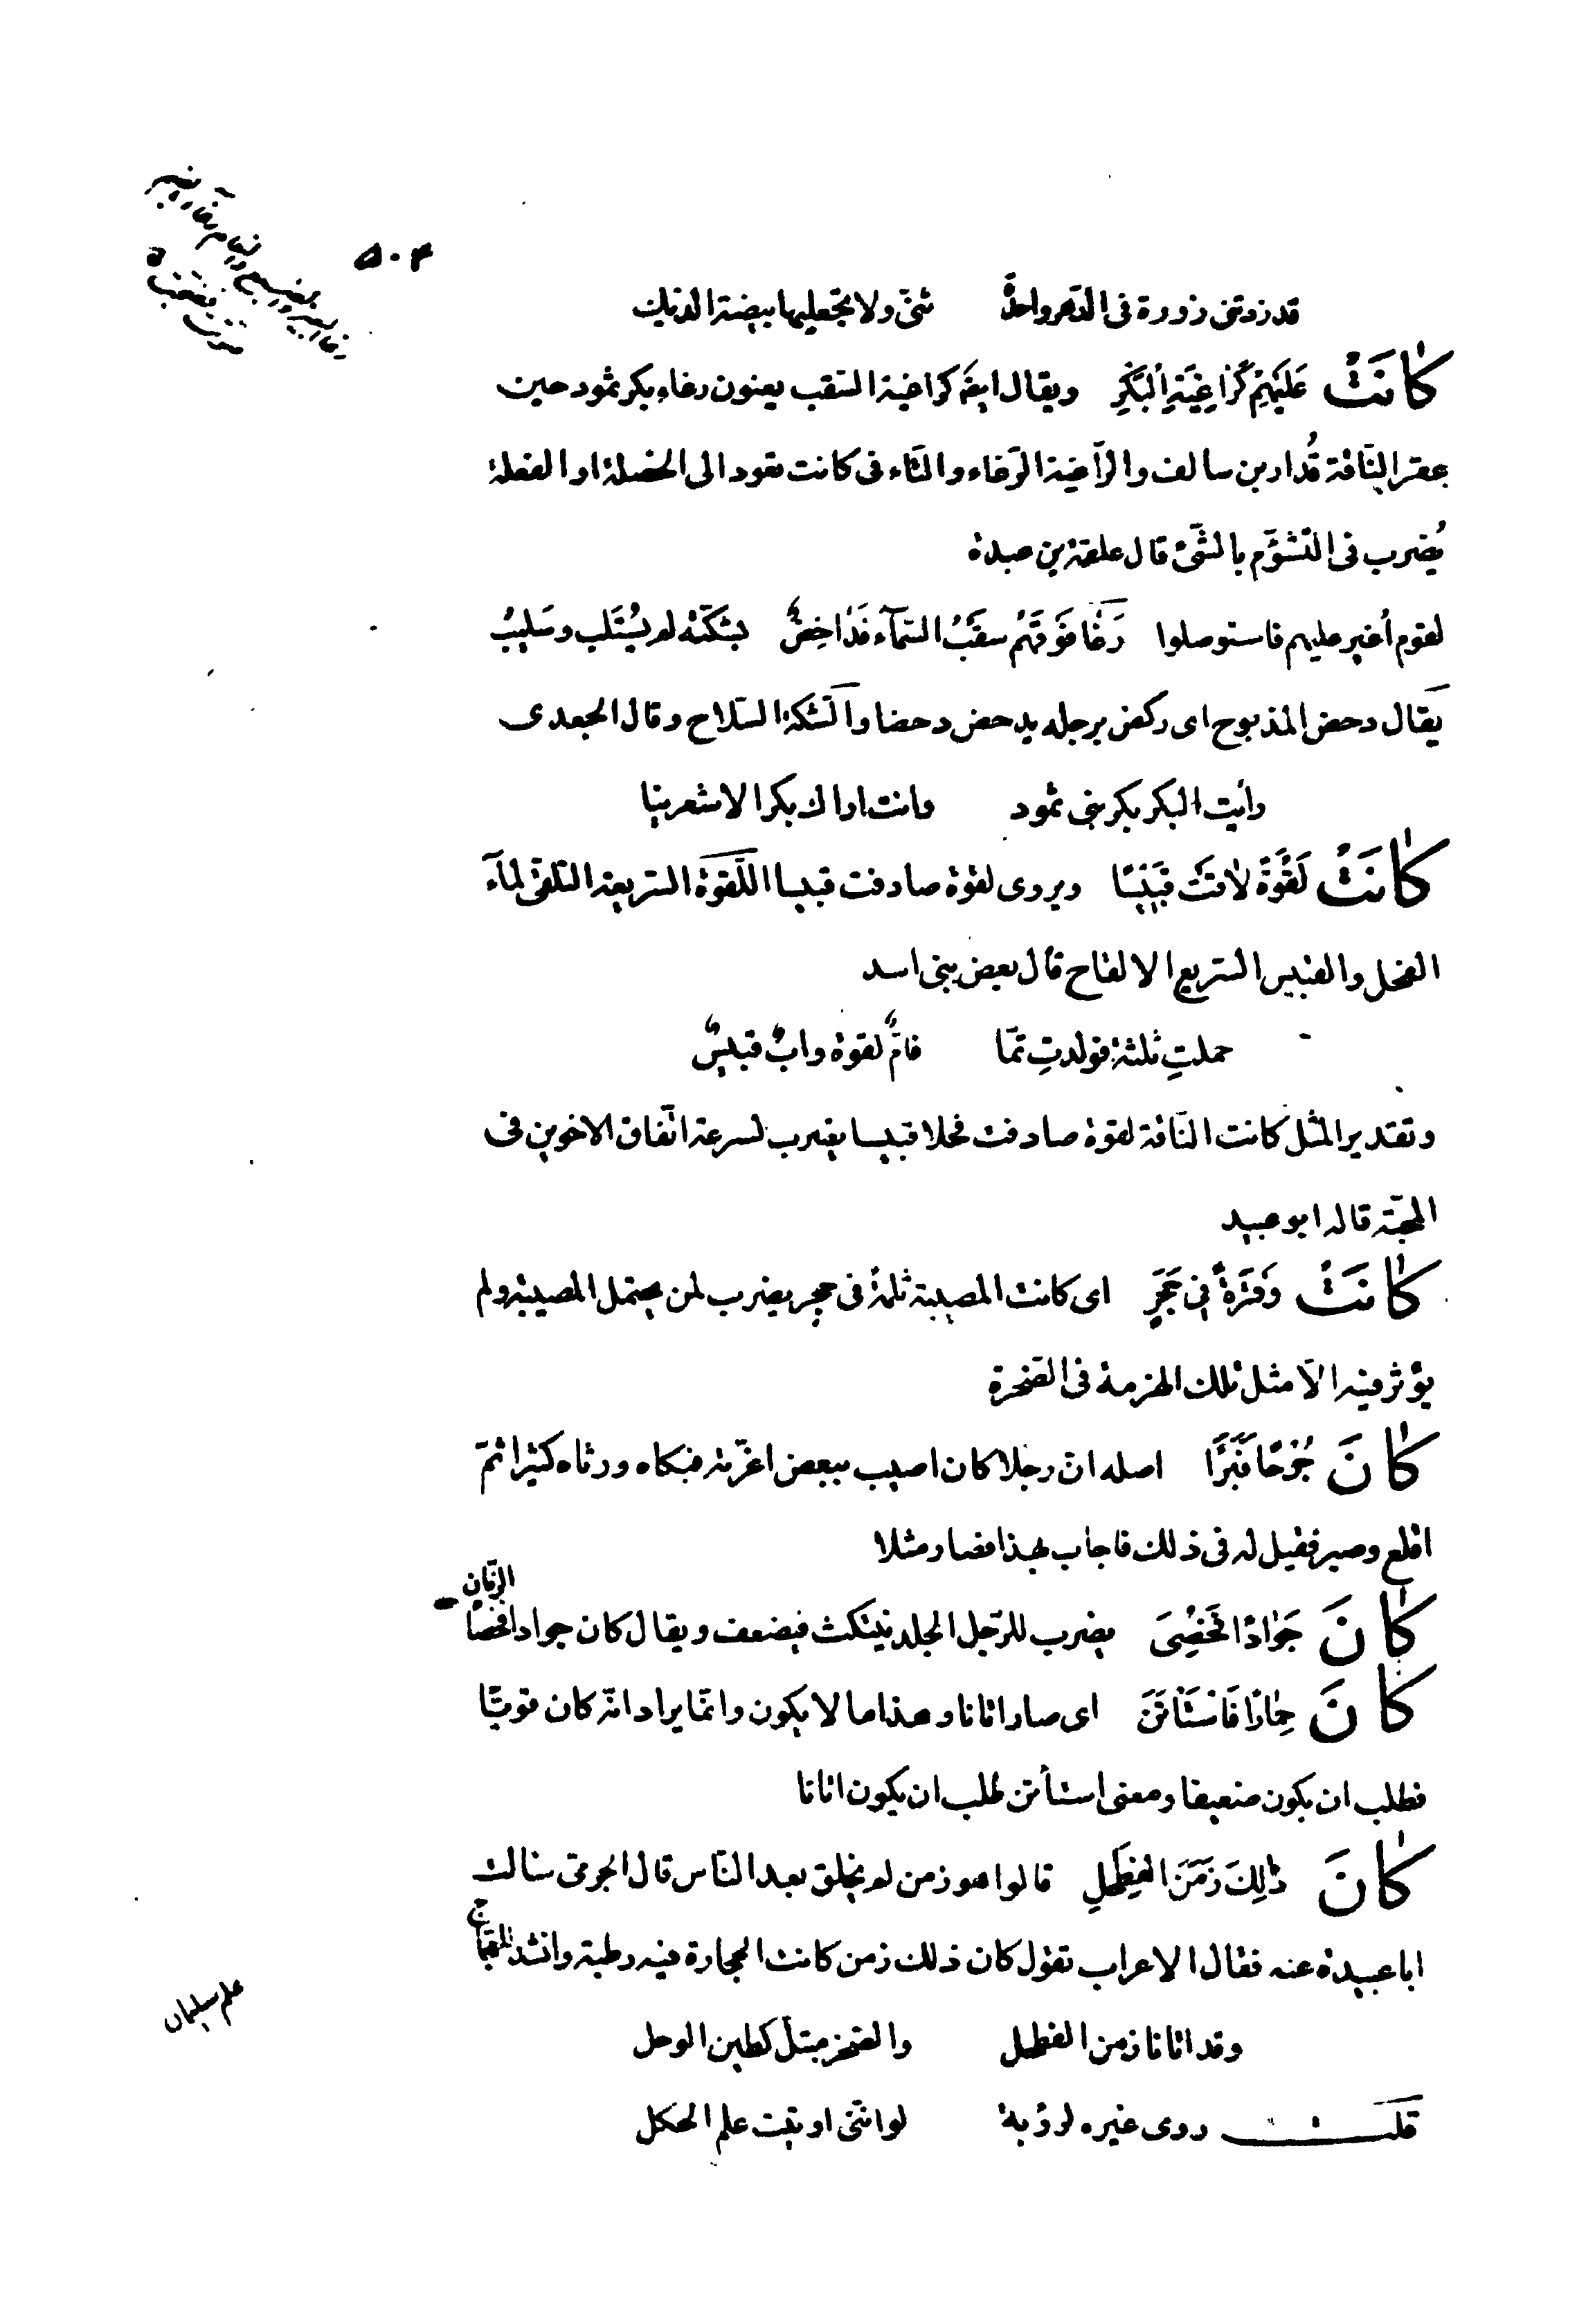 ٥٠٤
قد زرتنى زورة فى الدّهر واحدةً ثنّى ولا تجعليها بيضة الديك
كَانَتْ عَلَيْهِمْ كَرَاغِيَةِ الْبَكْرِ ويقال ايضًا كراغية السّقب يعنون رغاء بكر ثمود حين
عقر النّاقة قُدار بن سالف والرّاغية الرّغاء والتّاء فى كانت تعود الى الخصلة او الفعلة
يُضرب فى التّشؤّم بالشّئ قال علقمة بن عبدة
لقوم أغير عليهم فاستوصلوا رَغَا فَوْقَهُمْ سقْبُ السّمآء فَدَاحِضٌ بشكّته لم يُسْتَلب وسَليبُ
يقال دحض المذبوح اى ركض برجله يدحض دحضا والشّكة السّلاح وقال الجعدى
رأيت البكر بكر بنى ثمود وانت اراك بكر الاشعرينا
كَانَتْ لَقْوَةً لَاقَتْ قَبِيسًا ويروى لقوة صادفت قبيسا اللّقوة السّريعة التلقّى لمآء
الفحل والقبيس السّريع الالقاح قال بعض بنى اسد
حملتِ ثلثة فولدتِ تمّا فامٌّ لقوة وابٌ قبيسٌ
وتقدير المثل كانت النّاقة لقوة صادفت فحلا قبيسا يضرب لسرعة اتّفاق الاخوين فى
المحبّة قاله ابو عبيد
كَانَتْ وَقْرَةً فِى حَجَرٍ اى كانت المصيبة ثلمة فى حجر يضرب لمن يحتمل المصيبة ولم
يؤثر فيه الّا مثل تلك الهزمة فى الصّخرة
كَانَ جُرْحًا فَبَرَأَ اصله انّ رجلا كان اصيب ببعض اعزّته فبكاه ورثاه كثيرا ثمّ
اقلع وصبر فقيل له فى ذلك فاجاب بهذا فصار مثلا
كَانَ جَوَادًا فَخُصِىَ يضرب للرّجل الجلد ينتكث فيضعف ويقال كان جوادا فخصاه
الزّمان
كَانَ حِمَارًا فَاسْتَأْتَنَ اى صار اتانا وهذا ما لا يكون وانّما يراد انّه كان قويّا
فطلب ان يكون ضعيفا ومعنى استأتن طلب ان يكون اتانا
كَانَ ذٰلِكَ زَمَنَ الْفِطَحْلِ قالوا هو زمن لم يخلق بعد النّاس قال الجرمىّ سئالت
ابا عبيدة عنه فقال الاعراب تقول كان ذلك زمن كانت الحجارة فيه رطبة وانشد للعجّاج
وقد اتانا زمن الفطحل والصّخر مبتلّ كطين الوحل
قلت روى غيره لرؤبة لو انّنى اوتيت علم الحكل
علم سليمان